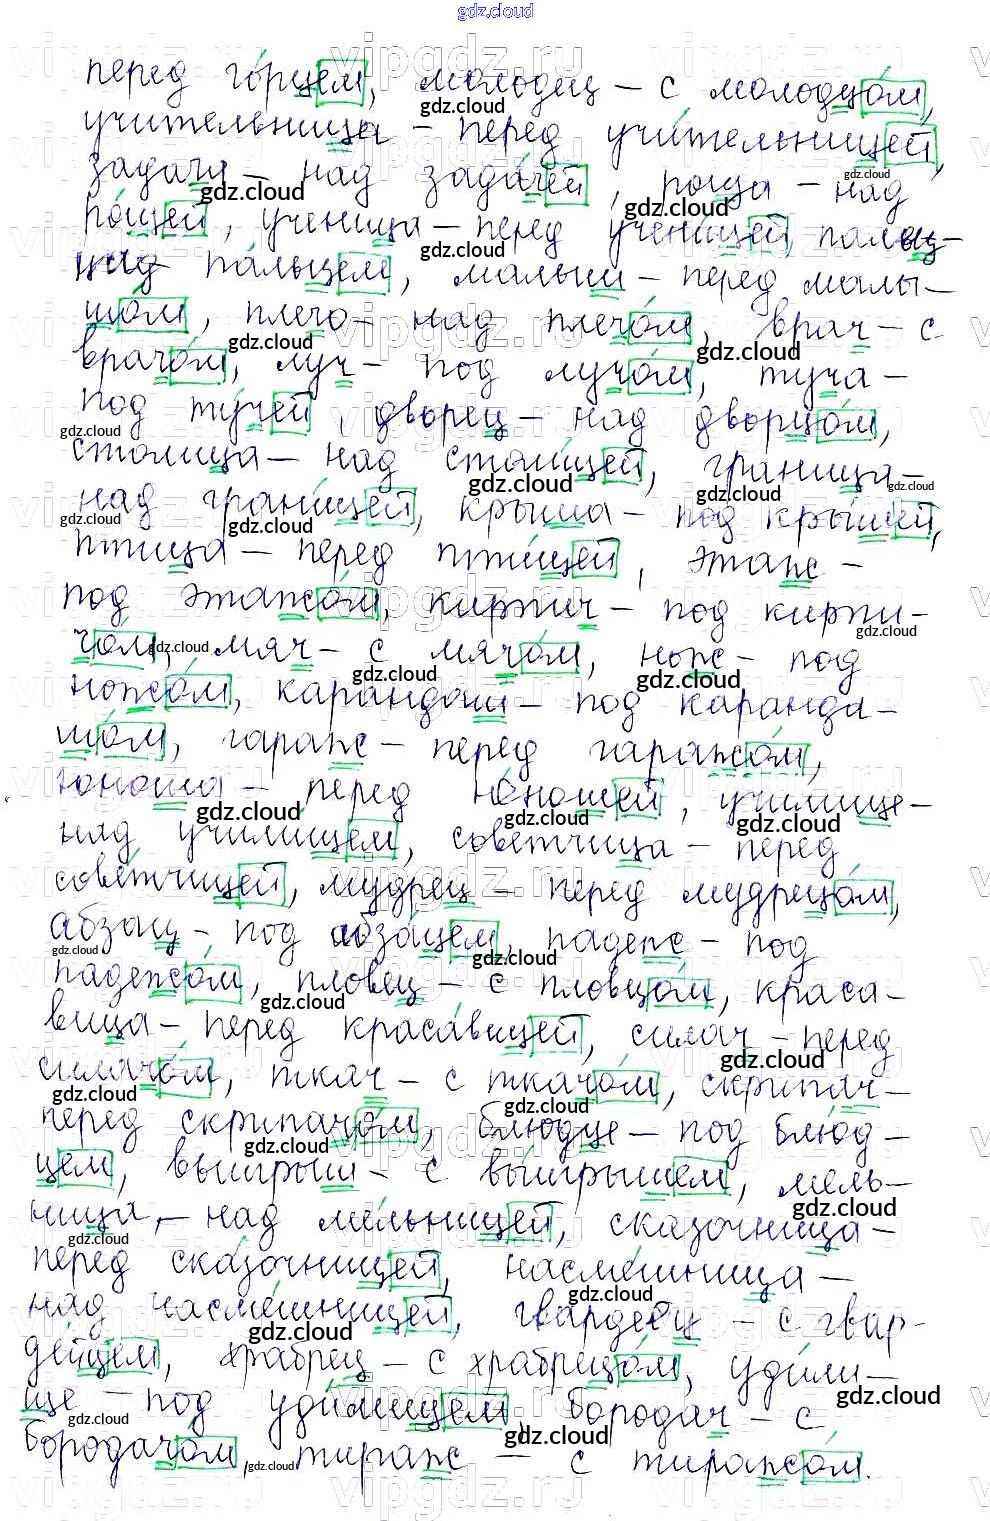 gdz.cloud
перед го́рцем, молодец – с молодцо́м,
учительница – перед учи́тельницей,
задача – над зада́чей, роща – над
ро́щей, ученица – перед учени́цей, палец –
над па́льцем, малыш – перед малы-
шо́м, плечо – над плечо́м, врач – с
врачо́м, луч – под лучо́м, туча –
под ту́чей, дворец – над дворцо́м,
столица – над столи́цей, граница –
над грани́цей, крыша – под кры́шей,
птица – перед пти́цей, этаж –
под этажо́м, кирпич – под кирпи-
чо́м, мяч – с мячо́м, нож – под
ножо́м, карандаш – под каранда-
шо́м, гараж – перед гаражо́м,
юноша – перед ю́ношей, училище –
над учи́лищем, советчица – перед
сове́тчицей, мудрец – перед мудрецо́м,
абзац – под абза́цем, падеж – под
падежо́м, пловец – с пловцо́м, краса-
вица – перед краса́вицей, силач – перед
силачо́м, ткач – с ткачо́м, скрипач –
перед скрипачо́м, блюдце – под блюд-
цем, выигрыш – с вы́игрышем, мель-
ница – над ме́льницей, сказочница –
перед ска́зочницей, насмешница –
над насме́шницей, гвардеец – с гвар-
де́йцем, храбрец – с храбрецо́м, удили-
ще – под уди́лищем, бородач – с
бородачо́м, тираж – с тиражо́м.